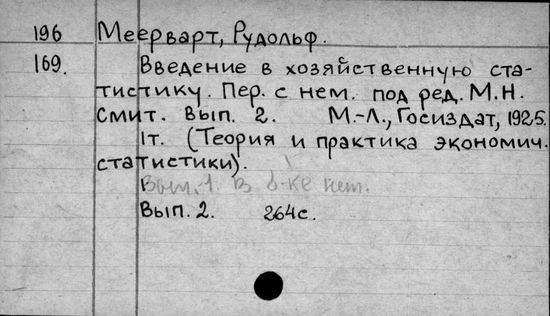 196 Меерварт, Рудольф.
169. Введение в хозяйственную ста-
тистику. Пер. с нем. под ред. М.Н.
Смит. Вып. 2. М.-Л., Госиздат, 1925.
1т. (Теория и практика экономич.
статистики).
Вып. 1. в б-ке нет.
Вып. 2. 264с.